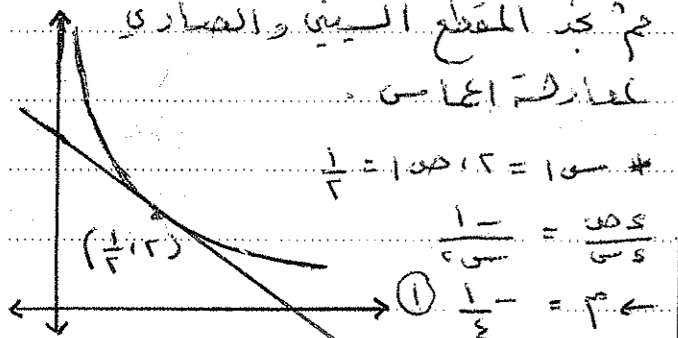 ثم نجد المقطع السيني والصادي
لمعادلة المماس .
* س١ = ٢ ، ص١ = ١/٢
(٢ ، ١/٢)
ءص/ءس = -١/س٢
← م = -١/٤ ①